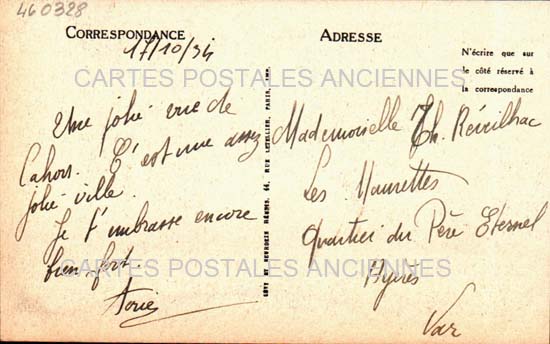 460328
CORRESPONDANCE
ADRESSE
17/10/34
N'écrire que sur
le côté réservé à
la correspondance
CARTES POSTALES ANCIENNES
Une jolie vue de
Cahors. C'est une assez
jolie ville.
Je t'embrasse encore
bien fort
Mademoiselle Th. Réveilhac
Les Maurettes
Quartier du Père Eternel
Hyères
Var
CARTES POSTALES ANCIENNES
66, RUE LETELLIER, PARIS, IMP.